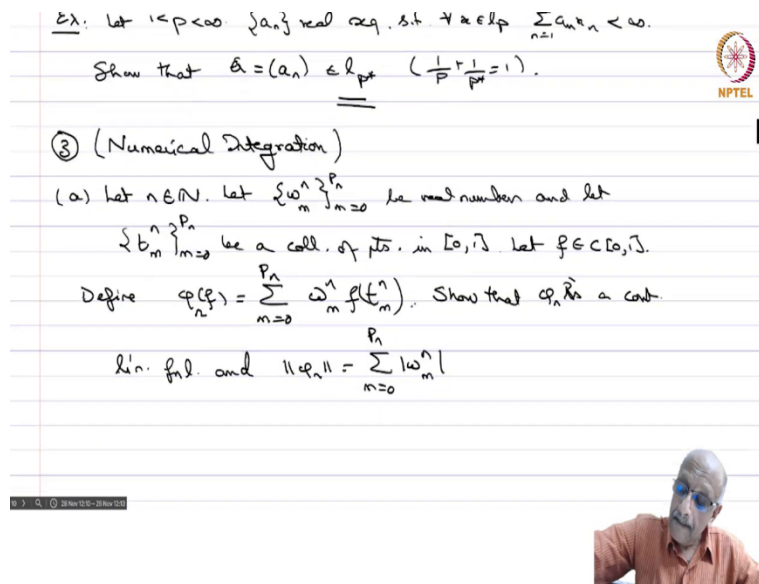 Ex: Let 1<p<∞. {a_n} real seq. s.t. ∀ x ∈ l_p ∑_{n=1} a_n x_n < ∞.
Show that a = (a_n) ∈ l_{p*} (1/p + 1/p* = 1).
NPTEL
③ (Numerical Integration)
(a) Let n ∈ ℕ. Let {ω_m^n}_{m=0}^{p_n} be real numbers and let
{t_m^n}_{m=0}^{p_n} be a coll. of pts. in [0,1]. Let f ∈ C[0,1].
Define φ_n(f) = ∑_{m=0}^{p_n} ω_m^n f(t_m^n). Show that φ_n is a cont.
lin. fnl. and ‖φ_n‖ = ∑_{m=0}^{p_n} |ω_m^n|